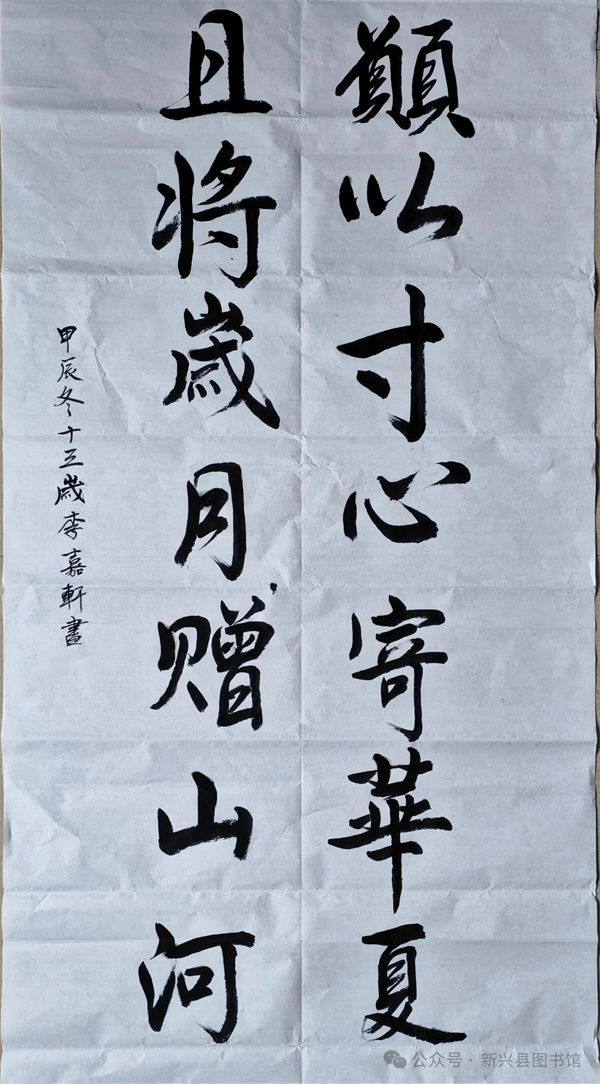 願以寸心寄華夏
且将歲月赠山河
甲辰冬十三歲李嘉軒書
公众号·新兴县图书馆